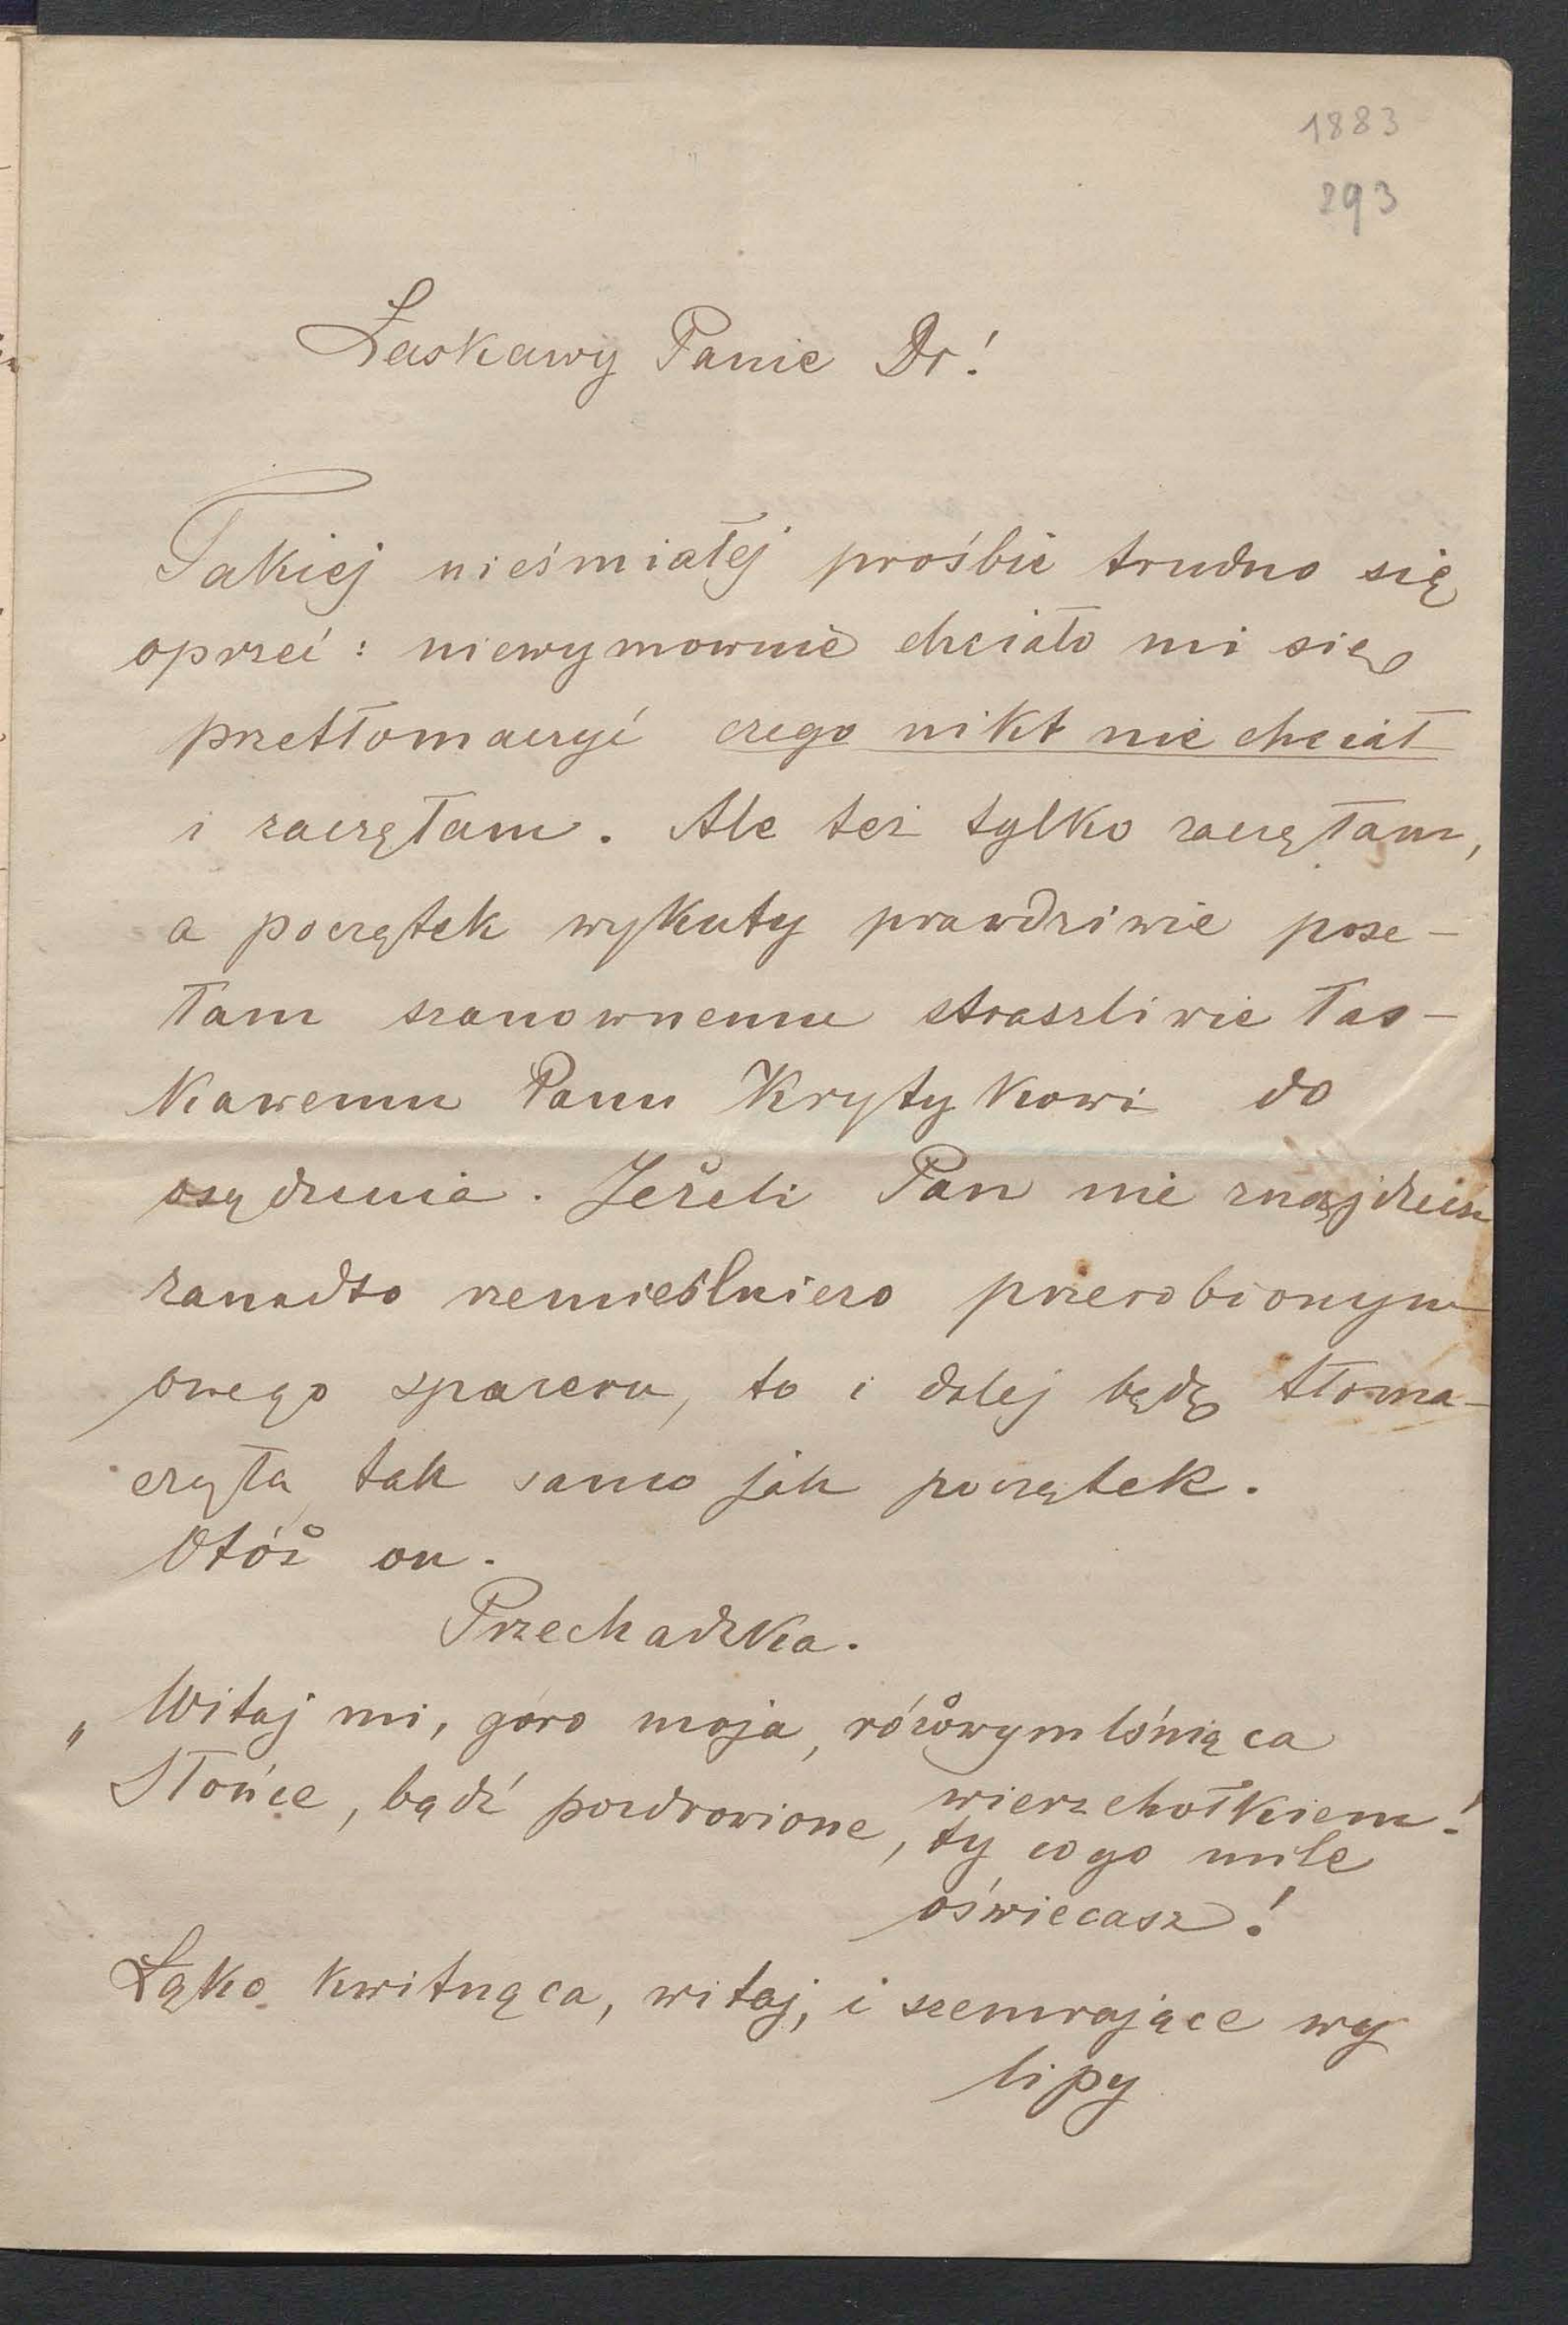 1883
293
Łaskawy Panie Dr!
Takiej nieśmiałej prośbie trudno się
oprzeć: niewymownie chciało mi się
przetłomaczyć czego nikt nie chciał
i zaczęłam. Ale też tylko zaczęłam,
a początek wykuty prawdziwie pose-
łam szanownemu straszliwie łas-
kawemu Panu Krytykowi do
osądzenia. Jeżeli Pan nie znajdziesz
zanadto rzemieślniczo przerobionym
owego spaceru, to i dalej będę tłoma-
czyła tak samo jak początek.
Otóż on.
Przechadzka.
„Witaj mi, góro moja, różowym lśniąca
wierzchołkiem!
Słońce, bądź pozdrowione, ty co go mile
oświecasz!
Łąko kwitnąca, witaj, i szemrające wy
lipy